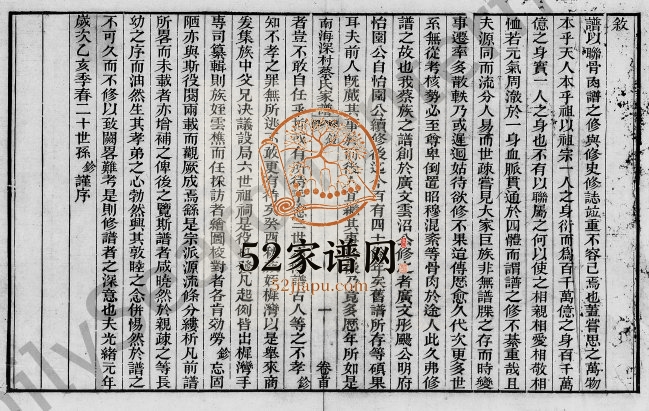 敘
譜以聯骨肉譜之修與修史修誌竝重不容已焉也蓋嘗思之萬物
本乎天人本乎祖以祖宗一人之身衍而爲百千萬億之身百千萬
億之身實一人之身也不有以聯屬之何以使之相親相愛相敬相
恤若元氣周澈於一身血脈貫通於四體而謂譜之修不綦重哉且
夫源同而流分人易而世疎嘗見大家巨族非無譜牒之存而時變
事遷率多散軼乃或遲迴姑待欲修不果這傳愿愈久代次更多世
系無從考核勢必至尊卑倒置昭穆混紊等骨肉於途人此久弗修
譜之故也我蔡族之譜創於廣文雲沼公修者廣文彤颺公明府
怡園公自怡園公續修後迄今百有四十年矣舊譜所存等碩果
耳夫前人既蕆其事於前後人多歷年所如是
南海深村蔡氏家譜 敘 一 卷首
者豈不敢自任乎抑或有所待乎譜古人等之不孝
知不孝之罪無所逃敢更有待乎癸酉姪樨灣以是舉來商
爰集族中父兄決議設局六世祖祠是役也凡起例皆出樨灣手
專司纂輯則族姪雲樵而任採訪者繪圖校對者各肯効勞鈔忘固
陋亦與斯役閱兩載而觀厥成焉緜是宗派源流條分縷析凡前譜
所畧而未載者亦增補之俾後之覽斯譜者咸曉然於親疎之等長
幼之序而油然生其孝弟之心勃然興其敦睦之念併惕然於譜之
不可久而不修以致闕畧難考是則修譜者之深意也夫光緒元年
歲次乙亥季春二十世孫 鈔謹序
52家谱网
52jiapu.com